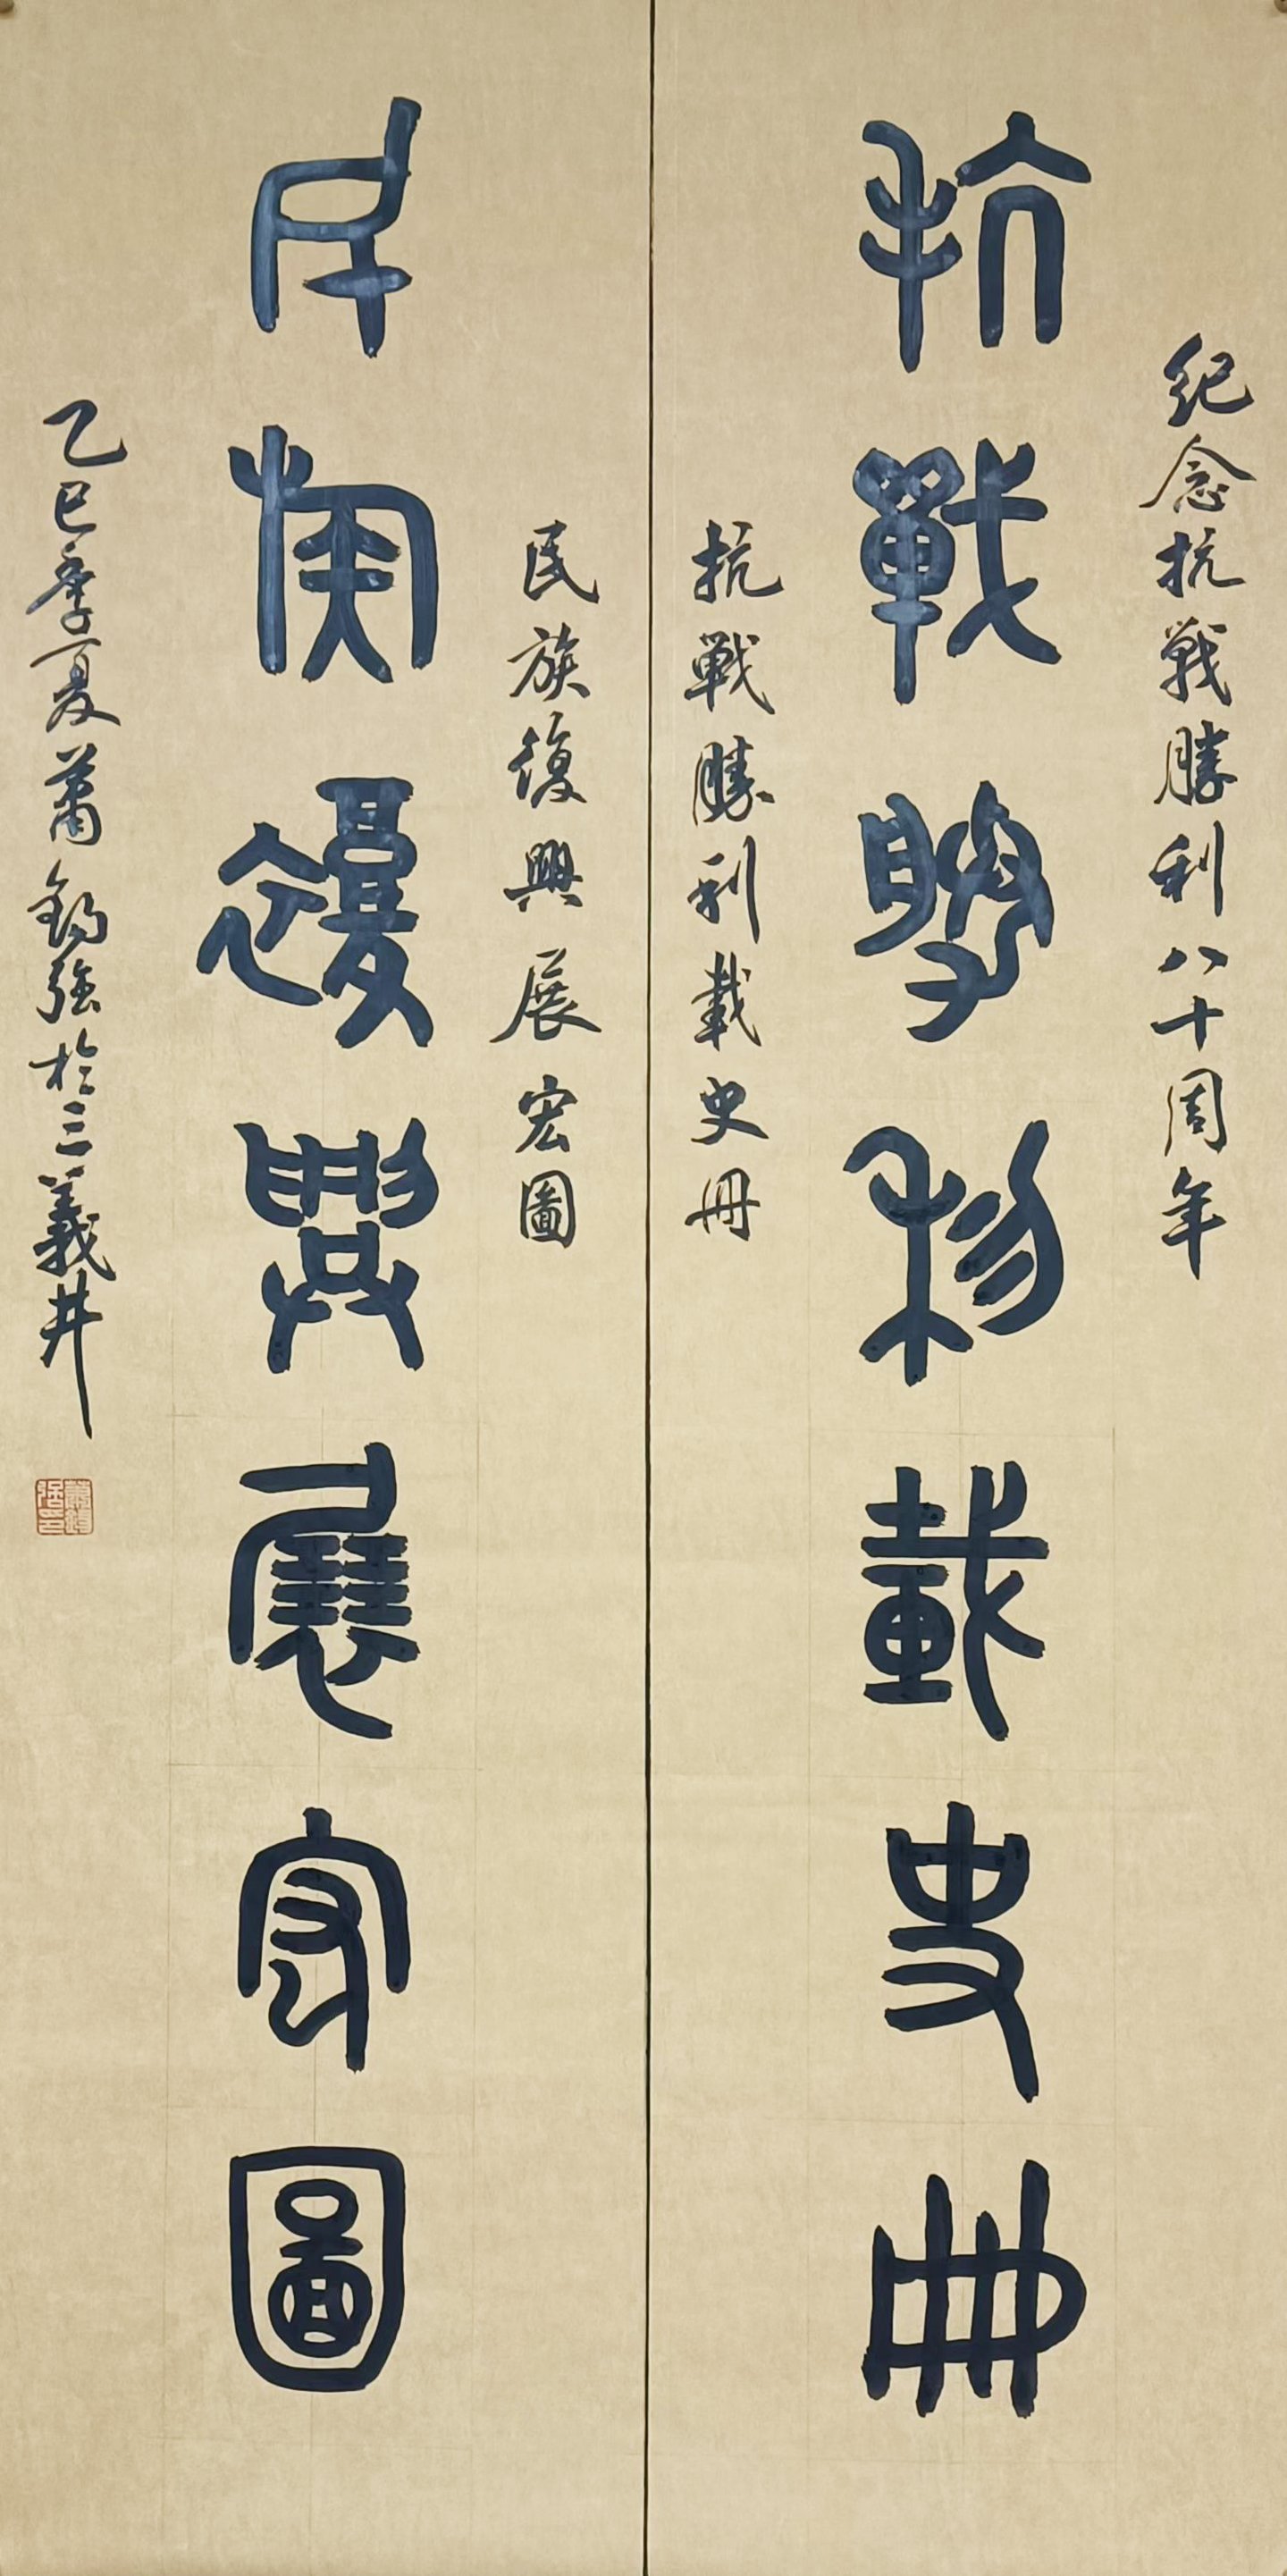 紀念抗戰勝利八十周年
抗戰勝利載史冊
抗戰勝利載史冊
民族復興展宏圖
民族復興展宏圖
乙巳季夏蕭錫强於三義井